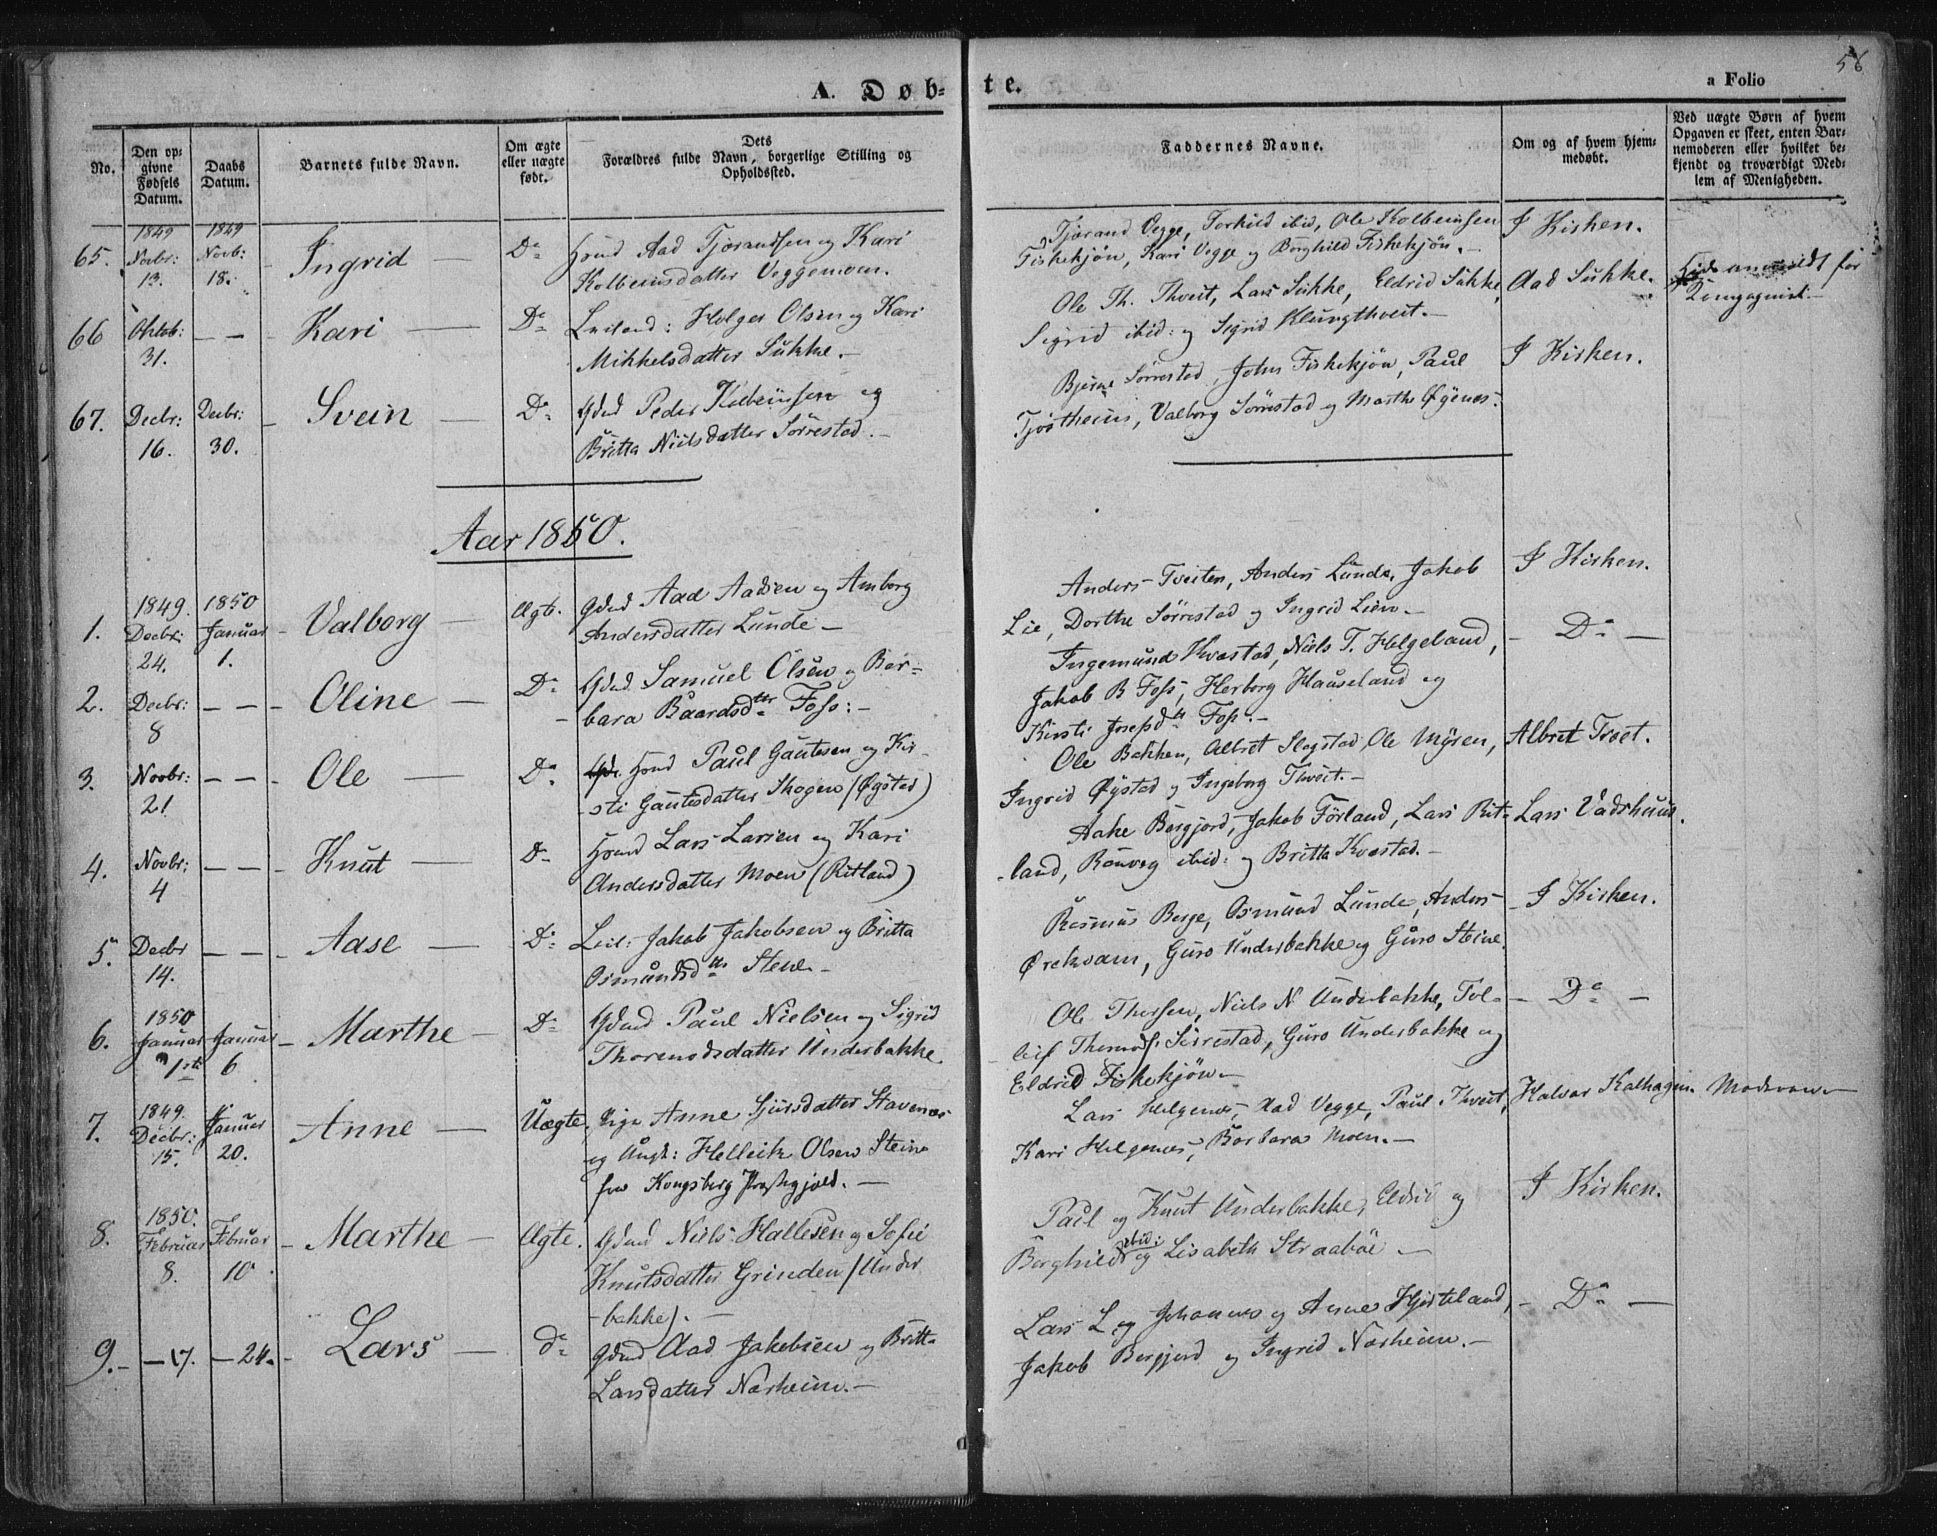 56
A. Døb-
te.
a Folio
No.
Den op-
givne
Fødsels
Datum.
Daabs
Datum.
Barnets fulde Navn.
Om ægte
eller uægte
født.
Dets
Forældres fulde Navn, borgerlige Stilling og
Opholdssted.
Faddernes Navne.
Om og af hvem hjem-
medøbt.
Ved uægte Børn af hvem
Opgaven er skeet, enten Bar-
nemoderen eller hvilket be-
kjendt og troværdigt Med-
lem af Menigheden.
65.
1849
Novbr:
13.
1849
Novb:
18.
Ingrid
Do
Hmd Aad Tjørandsen og Kari
Kolbeinsdatter Veggemoen.
Tjørand Vegge, Torkild ibid, Ole Kolbeinsen
Fiskekjøn, Kari Vegge og Borghild Fiskekjøn.
I Kirken.
66
Oktob:
31.
Kari
Do
Leiland: Helge Olsen og Kari
Mikkelsdatter Sukke.
Ole Th. Thveit, Lars Sukke, Eldrid Sukke,
Sigrid ibid: og Sigrid Klungthveit.
Aad Sukke.
67.
Decbr:
16.
Decbr:
30.
Svein
Do
Gdmd Peder Kolbeinsen og
Britta Nielsdatter Sørrestad.
Bjerne Sørrestad, John Fiskekjøn, Paul
Tjøstheim, Valborg Sørrestad og Marthe Øgenes.
I Kirken.
Aar 1850.
1.
1849.
Decbr:
24.
1850
Januar
1.
Valborg
Ægte.
Gdmd Aad Aadsen og Amborg
Andersdatter Lunde
Anders Tveiten, Anders Lunde, Jakob
Lie, Dorthe Sørrestad og Ingrid Lien.
I Kirken.
2.
Decbr:
8
Oline
Do
Gdmd Samuel Olsen og Bar-
bara Baardsdtr Foss:
Ingemund Kvæstad, Niels T. Helgeland,
Jakob B Foss, Herborg Hauseland og
Kirsti Josepsdtr Foss.
Do
3.
Novbr:
21
Ole
Do
Hmd Paul Gautesen og Kir-
sti Gautesdatter Skogen (Øystad)
Ole Bakken, Albret Slogstad, Ole Myren,
Ingrid Øystad og Ingeborg Thveit.
Albret Tvet.
4.
Novbr:
4
Knut
Do
Hmd Lars Larsen og Kari
Andersdatter Moen (Ritland)
Aake Bergjord, Jakob Førland, Lars Rit-
land, Rønveg ibid: og Britta Kvæstad.
Lars Vadshuus.
5.
Decbr
14.
Aase
Do
Leil: Jakob Jakobsen og Britta
Osmundsdtr Stene
Rasmus Berge, Osmund Lunde, Anders
Ørekvam, Guro Underbakke og Guro Steine
I Kirken.
6.
1850
Januar
1ste
Januar
6
Marthe
Do
Gdmd Paul Nielsen og Sigrid
Thormodsdatter Underbakke
Ole Thorsen, Niels N Underbakke, Tol-
leif Thormods. Sørrestad, Guro Underbakke og
Eldrid Fiskekjøn
Do
7.
1849.
Decbr:
15.
Januar
20.
Anne
Uægte
Pige Anne Sjursdatter Stavenæs
og Ungk: Helleik Olsen Steine
fra Kongsberg Præstegjeld.
Lars Helgenes, Aad Vegge, Paul Thveit,
Kari Helgenes, Barbara Moen.
Halvor Kalhagen.
Moderen
8.
1850.
Februar
8.
Februar
10
Marthe
Ægte.
Gdmd Niels Hallesen og Sofie
Knutsdatter Grinden (Under
bakke).
Paul og Knut Underbakke, Eldrid og
Borghild ibid: og Lisabeth Straabøe
I Kirken.
9.
17.
24.
Lars
do
Gdmd Aad Jakobsen og Britta
Larsdatter Nærheim.
Lars L og Johannes og Anne Hjorteland,
Jakob Bergjord og Ingrid Nærheim.
Do